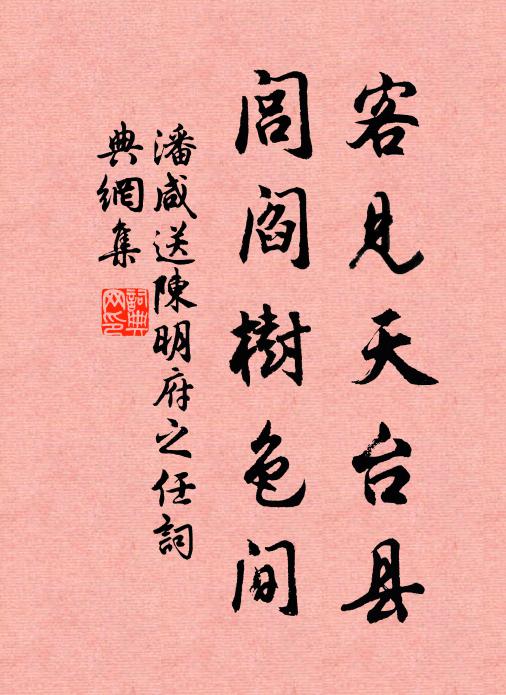 客见天台县
闾阎樹色间
潘咸送陳明府之任詞
典網集
詞典网印